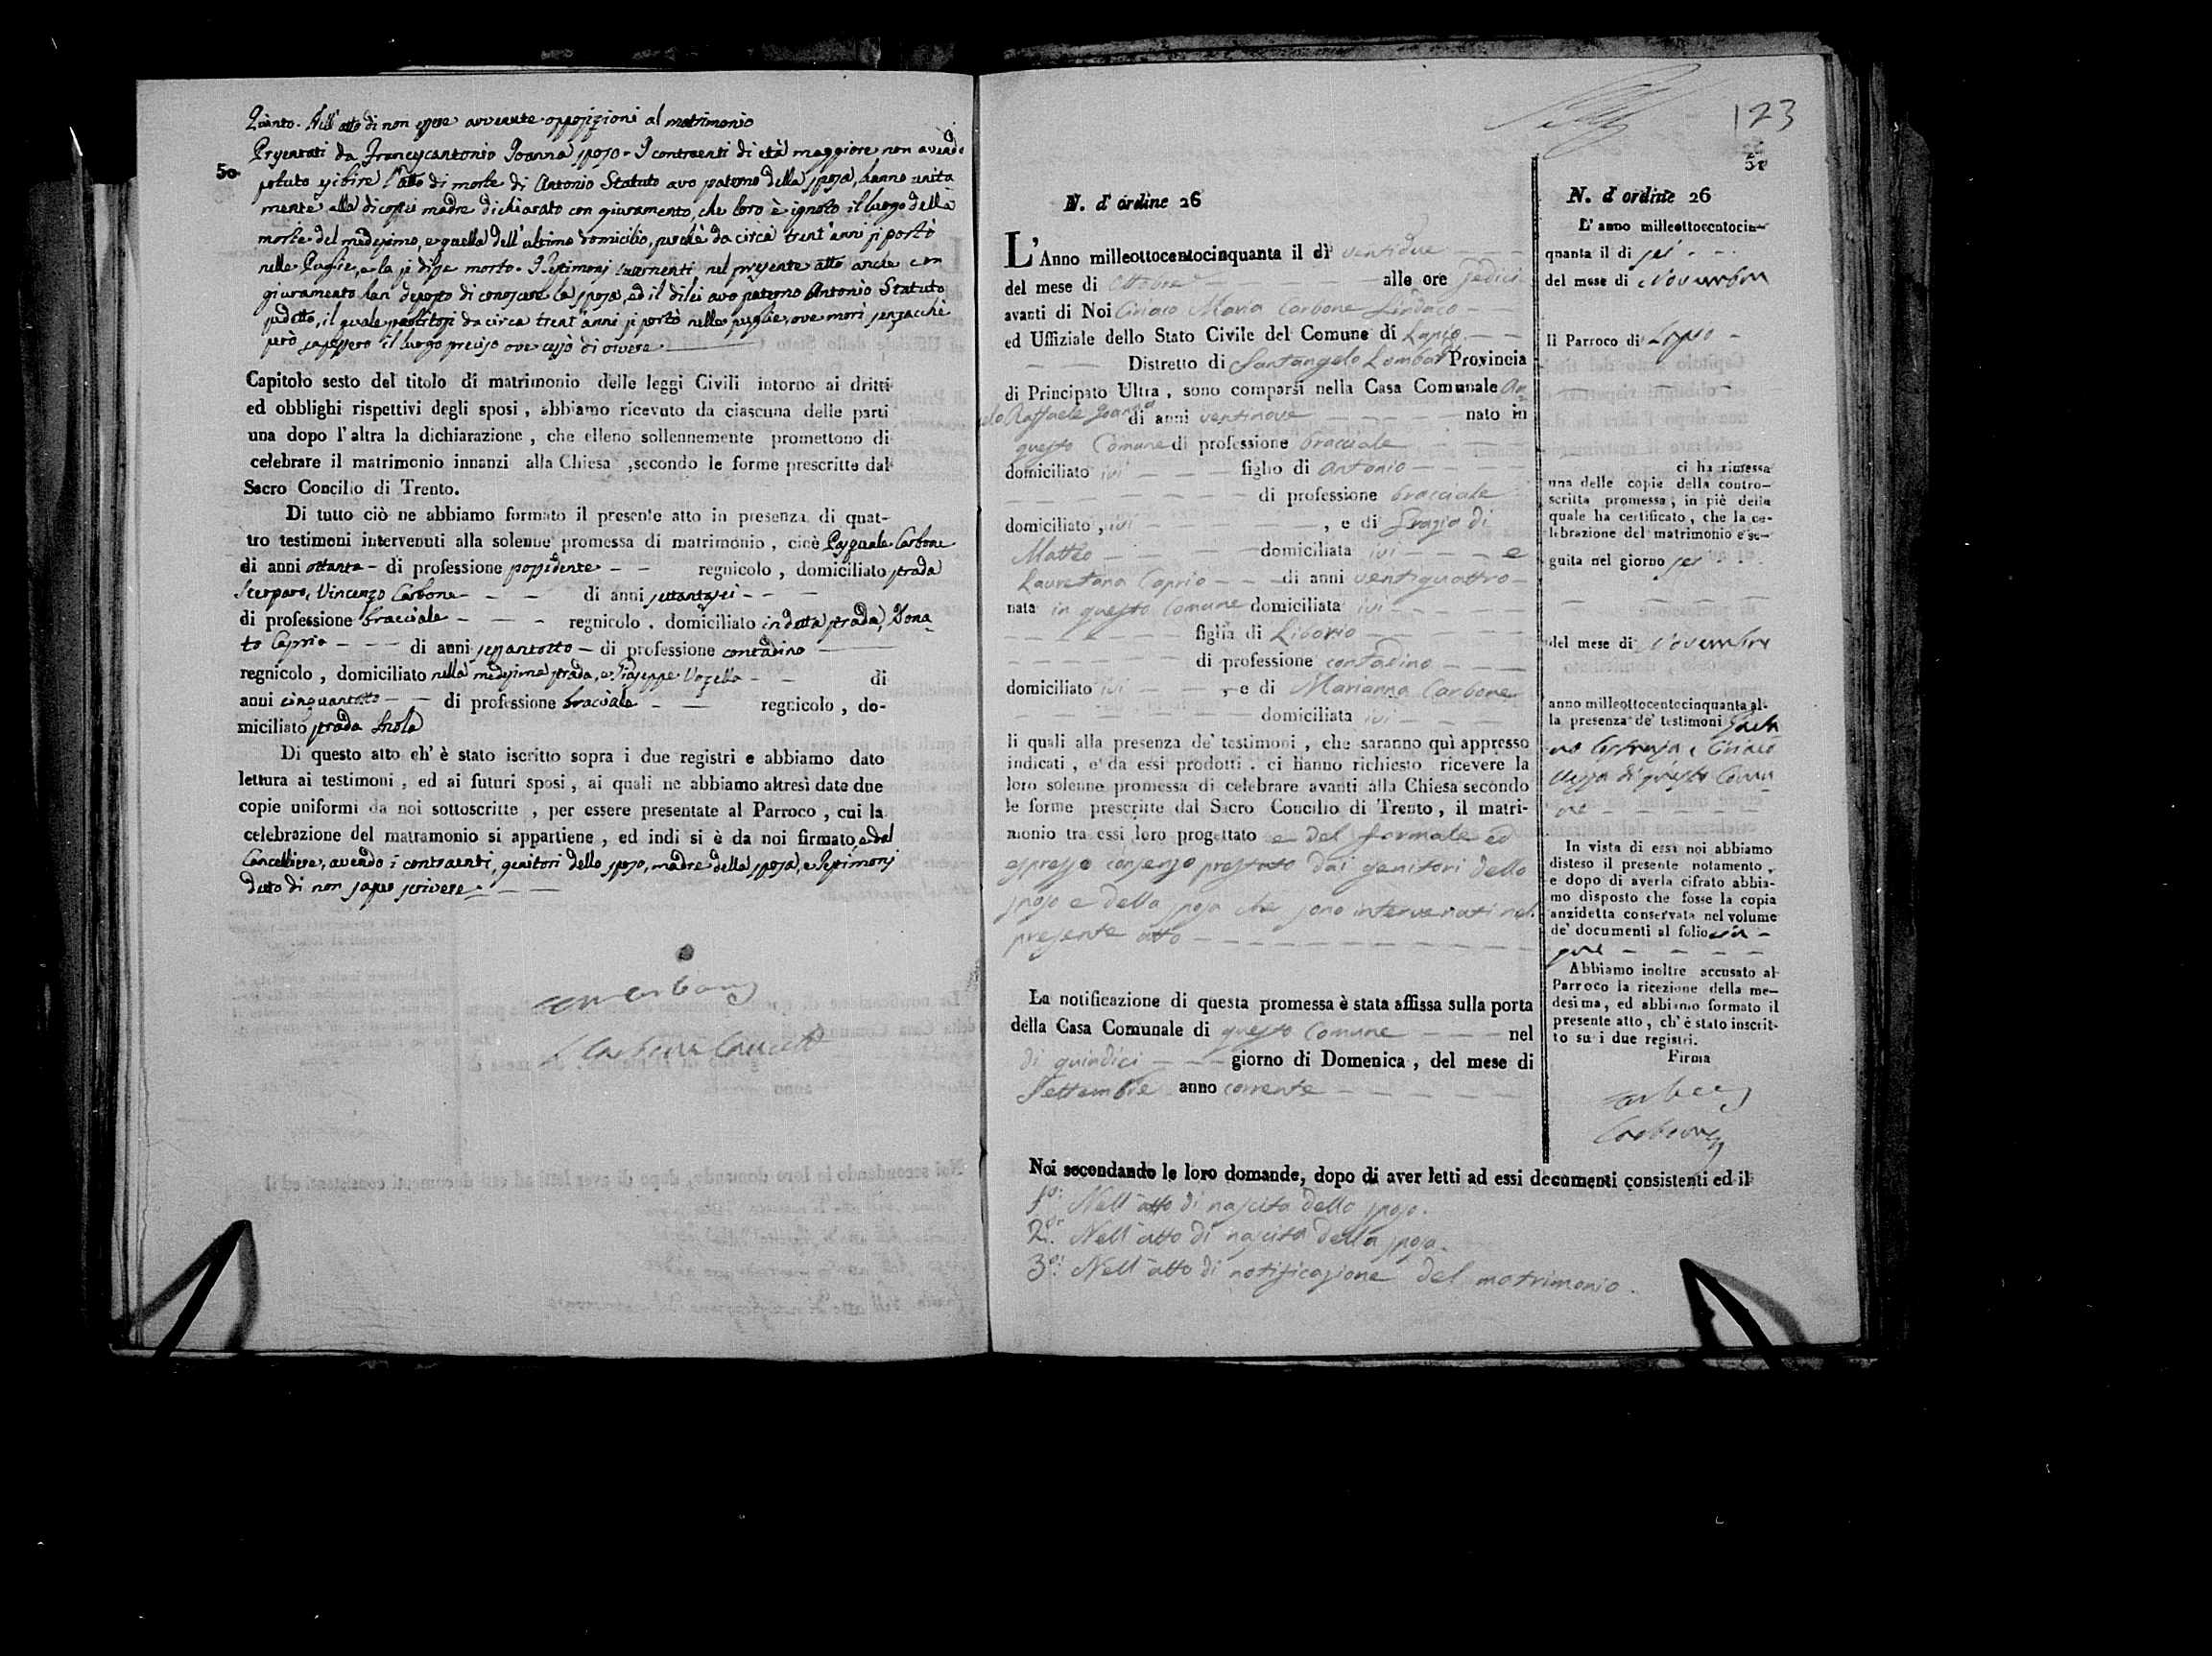 Quinto. Nell'atto di non essere avvenute opposizioni al matrimonio
Presentati da Francescantonio Joanna sposo. I contraenti di età maggiore non avendo
50
potuto esibire l'atto di morte di Antonio Statuto avo paterno della sposa, hanno unita
mente alla di costei madre dichiarato con giuramento, che loro è ignoto il luogo della
morte del medesimo, e quella dell'ultimo domicilio, perchè da circa trent'anni si portò
nelle Puglie, e la si disse morto. I Testimonj intervenenti nel presente atto anche con
giuramento han deposto di conoscere la sposa, ed il di lei avo paterno Antonio Statuto
sudetto, il quale da circa trent'anni si portò nelle puglie, ove morì senzacchè
però sapessero il luogo preciso ove cessò di vivere
Capitolo sesto del titolo di matrimonio delle leggi Civili intorno ai dritti
ed obblighi rispettivi degli sposi, abbiamo ricevuto da ciascuna delle parti
una dopo l'altra la dichiarazione, che elleno sollennemente promettono di
celebrare il matrimonio innanzi alla Chiesa, secondo le forme prescritte dal
Sacro Concilio di Trento.
Di tutto ciò ne abbiamo formato il presente atto in presenza di quat-
tro testimoni intervenuti alla solenne promessa di matrimonio, cioè Pasquale Carbone
di anni ottanta - di professione possidente - - regnicolo, domiciliato strada
Vincenzo Carbone - - - di anni settantasei - - -
di professione bracciale - - - regnicolo, domiciliato in detta strada, Dona-
to Caprio - - - di anni sessantotto - di professione contadino
regnicolo, domiciliato nella medesima strada, e Giuseppe Vozella - - di
anni cinquantotto - - di professione bracciale - - regnicolo, do-
miciliato strada
Di questo atto ch'è stato iscritto sopra i due registri e abbiamo dato
lettura ai testimoni, ed ai futuri sposi, ai quali ne abbiamo altresì date due
copie uniformi da noi sottoscritte, per essere presentate al Parroco, cui la
celebrazione del matramonio si appartiene, ed indi si è da noi firmato, e dal
Cancelliere, avendo i contraenti, genitori dello sposo, madre della sposa, e Testimonj
detto di non sapere scrivere
123
N. d'ordine 26
L'Anno milleottocentocinquanta il dì ventidue
del mese di Ottobre alle ore sedici
avanti di Noi Ciriaco Maria Carbone Sindaco
ed Uffiziale dello Stato Civile del Comune di Lapio
Distretto di Santangelo Lombardi Provincia
di Principato Ultra, sono comparsi nella Casa Comunale An
gelo Raffaele Joanna di anni ventinove nato in
questo Comune di professione bracciale
domiciliato ivi figlio di Antonio
di professione bracciale
domiciliato, ivi, e di Grazia di
Matteo domiciliata ivi e
Lauretana Caprio di anni ventiquattro
nata in questo Comune domiciliata ivi
figlia di Liborio
di professione contadino
domiciliato ivi, e di Marianna Carbone
domiciliata ivi
li quali alla presenza de' testimoni, che saranno quì appresso
indicati, e da essi prodotti, ci hanno richiesto ricevere la
loro solenne promessa di celebrare avanti alla Chiesa secondo
le forme prescritte dal Sacro Concilio di Trento, il matri-
monio tra essi loro progettato e del formale ed
espresso consenso prestato dai genitori dello
sposo e della sposa che sono intervenuti nel
presente atto
La notificazione di questa promessa è stata affissa sulla porta
della Casa Comunale di questo Comune nel
dì quindici giorno di Domenica, del mese di
Settembre anno corrente
Noi secondando le loro domande, dopo di aver letti ad essi documenti consistenti ed il
1o: Nell'atto di nascita dello sposo.
2o: Nell'atto di nascita della sposa.
3o: Nell'atto di notificazione del matrimonio.
N. d'ordine 26
L'anno milleottocentocin-
quanta il di sei
del mese di Novembre
Il Parroco di Lapio
ci ha rimessa
una delle copie della contro-
scritta promessa, in piè della
quale ha certificato, che la ce-
lebrazione del matrimonio è se-
guita nel giorno sei
del mese di Novembre
anno milleottocentocinquanta al-
la presenza de' testimoni
di questo Comu
ne
In vista di essa noi abbiamo
disteso il presente notamento,
e dopo di averla cifrato abbia-
mo disposto che fosse la copia
anzidetta conservata nel volume
de' documenti al folio
Abbiamo inoltre accusato al
Parroco la ricezione della me-
desima, ed abbiamo formato il
presente atto, ch'è stato inscrit-
to su i due registri.
Firma
Carbone